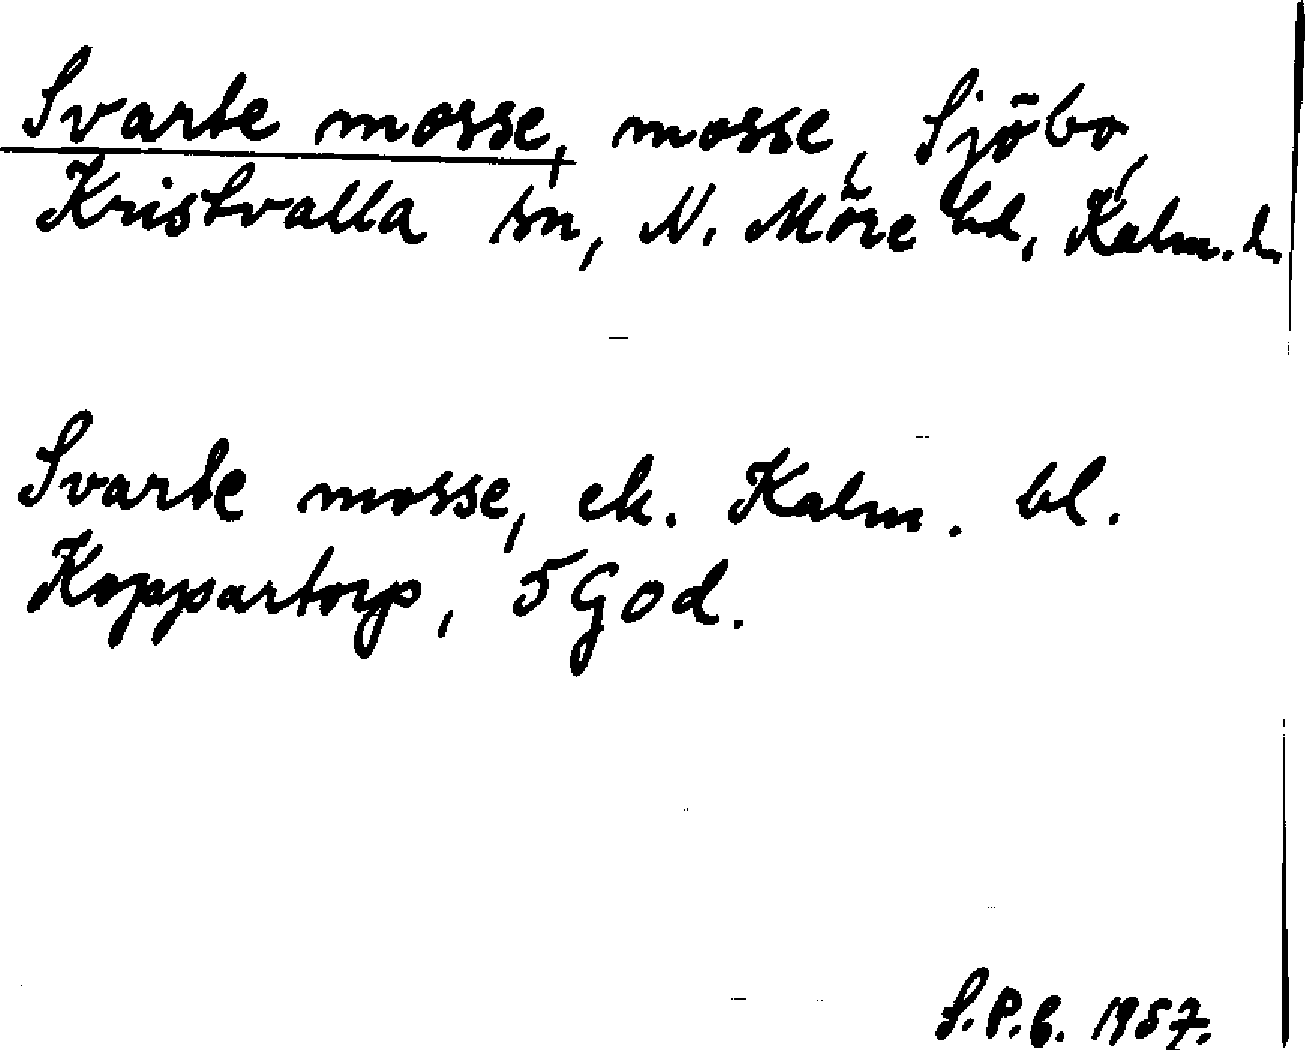 Svarte mosse, mosse, Sjöbo,
Kristvalla sn, N. Möre hd, Kalm. l.
Svarte mosse, ek. Kalm. bl.
Koppartorp, 5 God.
S.P.B. 1957.